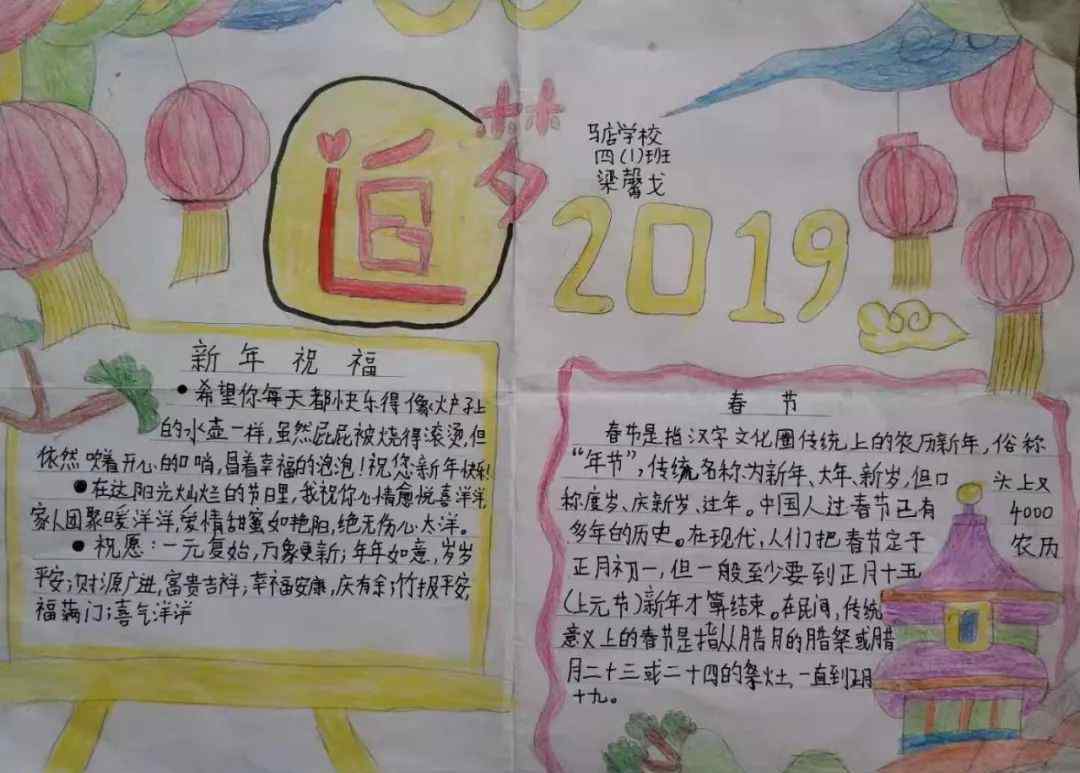 追梦
马店学校
四(1)班
梁馨戈
2019
新年祝福
●希望你每天都快乐得像火炉子上
的水壶一样,虽然屁屁被烧得滚烫,但
依然吹着开心的口哨,冒着幸福的泡泡!祝您新年快乐!
●在这阳光灿烂的节日里,我祝你心情愈悦喜洋洋,
家人团聚暖洋洋,爱情甜蜜如艳阳,绝无伤心太洋。
●祝愿:一元复始,万象更新;年年如意,岁岁
平安;财源广进,富贵吉祥;幸福安康,庆有余;竹报平安,
福满门;喜气洋洋
春节
春节是指汉字文化圈传统上的农历新年,俗称
“年节”,传统名称为新年、大年、新岁,但口头上又
称度岁、庆新岁、过年。中国人过春节已有4000
多年的历史。在现代,人们把春节定于农历
正月初一,但一般至少要到正月十五
(上元节)新年才算结束。在民间,传统
意义上的春节是指从腊月的腊祭或腊
月二十三或二十四的祭灶,一直到正月
十九。